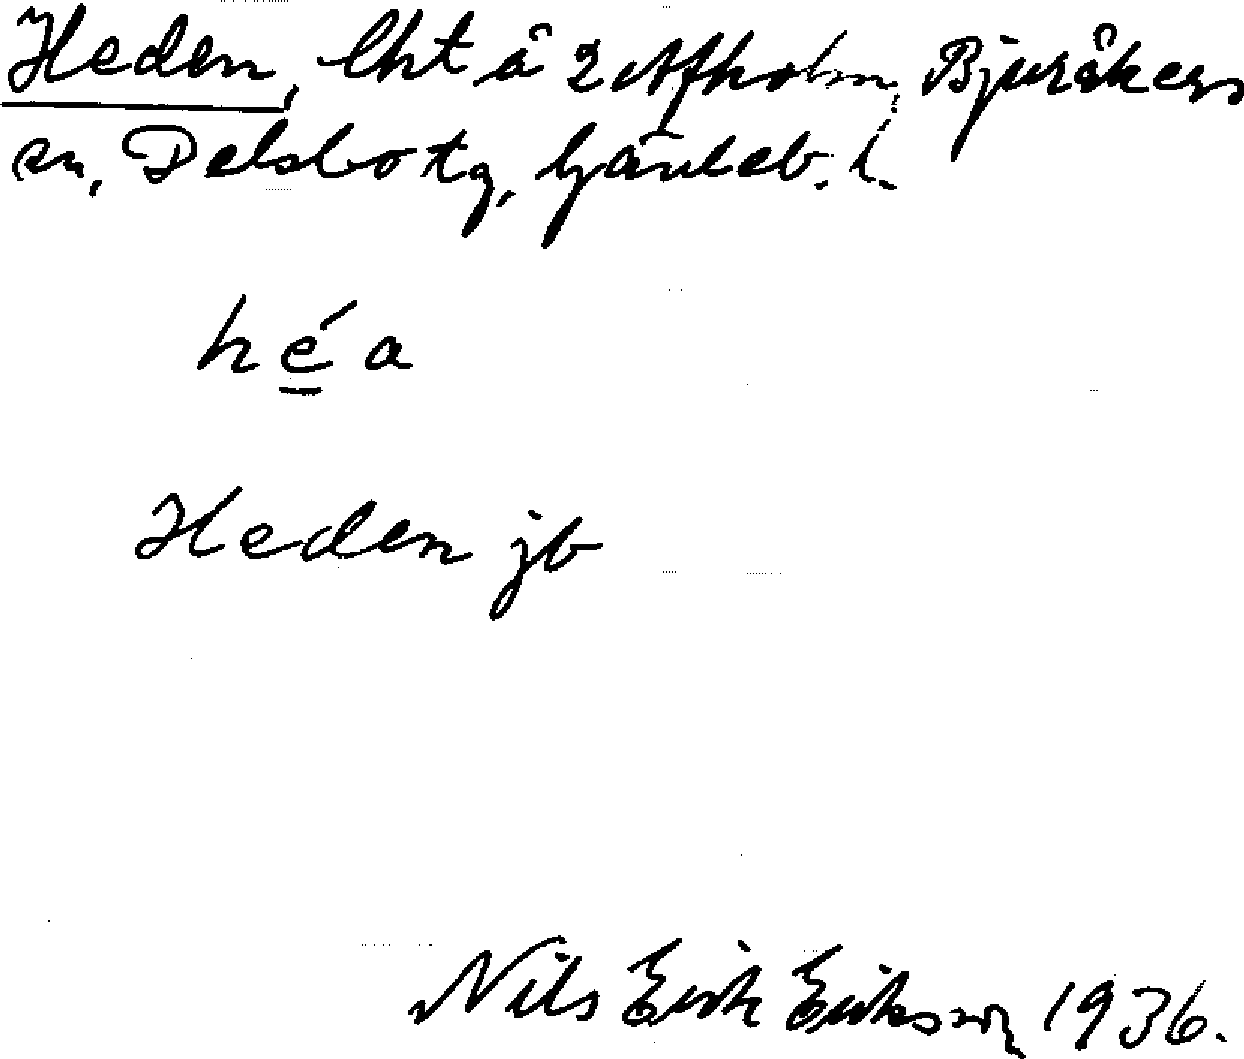 Heden, lht å 2 Afholm, Bjuråkers
sn, Delsbo tg, Gävleb. l.
héa
Heden jb
Nils Erik Eriksson 1936.